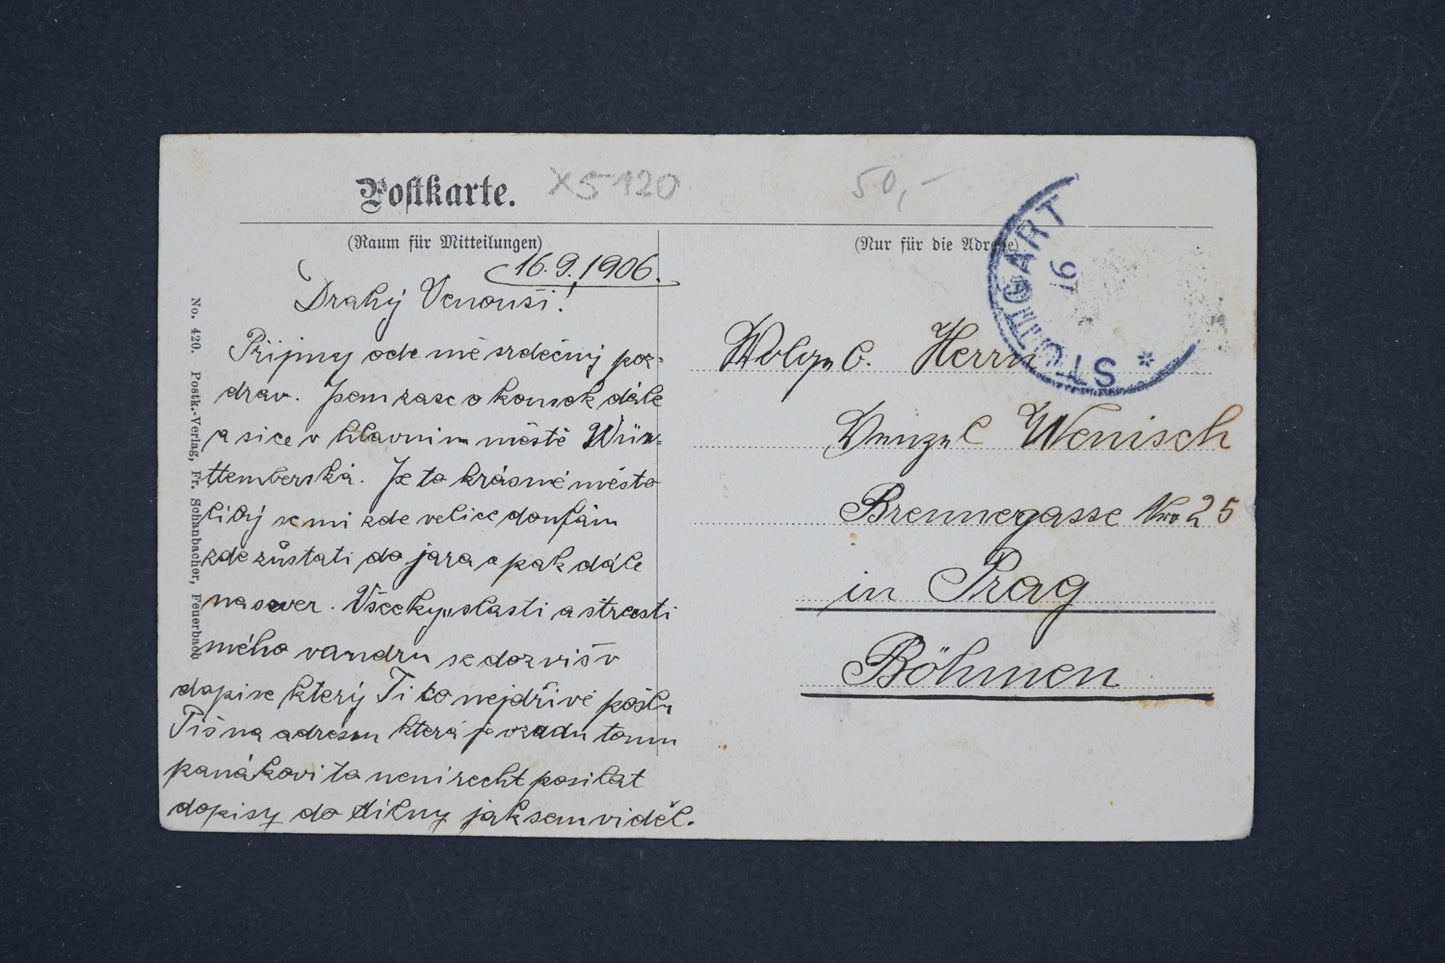 Postkarte.
X5-120
50,-
(Raum für Mitteilungen)
(Nur für die Adresse)
STUTTGART
16.9.1906.
Drahý Venouši!
Přijmy ode mě srdečný poz-
drav. Jsem zase o kousek dále
a sice v hlavním městě Wür-
ttemberská. Je to krásné město
libý se mi zde velice doufám
zde zůstati do jara a pak dále
na sever. Všecky slasti a strasti
mého vandru se dozvíš v
dopise který Ti co nejdříve pošlu
Piš na adresu která je vzadu tomu
panákovi to neni recht posilat
dopisy do dílny jak sem viděl.
Wolg. b. Herrn
Wenzel Wenisch
Brennegasse Nro 25
in Prag
Böhmen
No. 420. Postk.-Verlag, Fr. Schanbacher, Feuerbach